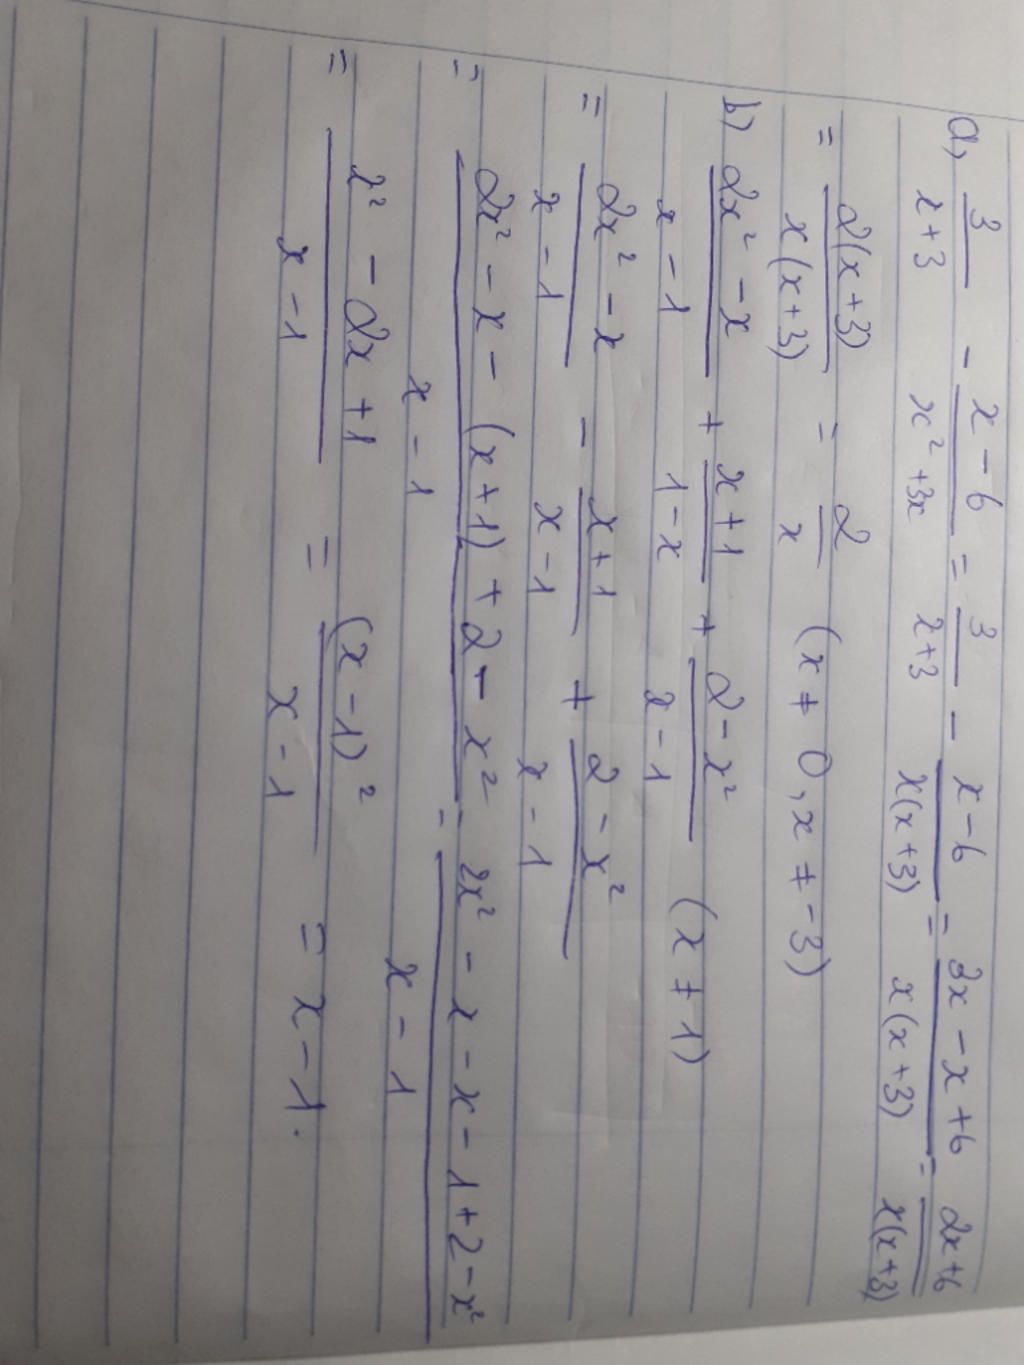 a, 3/(x+3) - (x-6)/(x²+3x) = 3/(x+3) - (x-6)/(x(x+3)) = (3x-x+6)/(x(x+3)) = (2x+6)/(x(x+3))
= 2(x+3)/(x(x+3)) = 2/x (x ≠ 0, x ≠ -3)
b) (2x²-x)/(x-1) + (x+1)/(1-x) + (2-x²)/(x-1) (x ≠ 1)
= (2x²-x)/(x-1) - (x+1)/(x-1) + (2-x²)/(x-1)
= (2x²-x-(x+1)+2-x²)/(x-1) = (2x²-x-x-1+2-x²)/(x-1)
= (x²-2x+1)/(x-1) = (x-1)²/(x-1) = x-1.